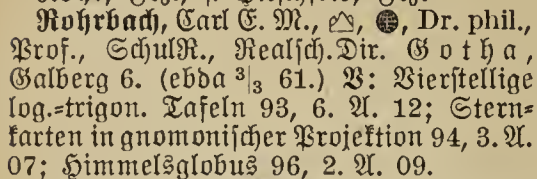 Rohrbach, Carl E. M., Dr. phil.,
Prof., SchulR., Realsch.Dir. Gotha,
Galberg 6. (ebda 3|3 61.) V: Vierstellige
log.=trigon. Tafeln 93, 6. A. 12; Stern=
karten in gnomonischer Projektion 94, 3. A.
07; Himmelsglobus 96, 2. A. 09.